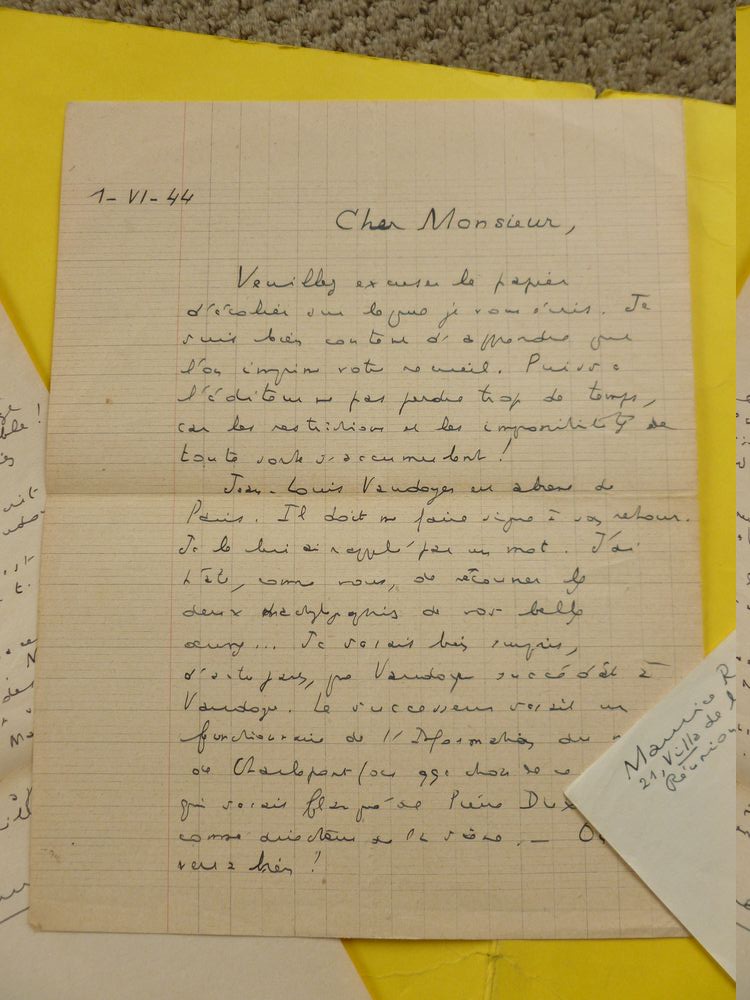 1-VI-44
Cher Monsieur,
Veuillez excuser le papier
d'écolier sur lequel je vous écris. Je
suis bien content d'apprendre que
l'on imprime votre recueil. Puisse
l'éditeur ne pas perdre trop de temps,
car les restrictions et les impossibilités de
toute sorte s'accumulent !
Jean-Louis Vaudoyer est absent de
Paris. Il doit me faire signe à son retour.
Je le lui ai rappelé par un mot. J'ai
hâte, comme vous, de retourner les
deux dactylographies de vos belles
œuvres... Je serais bien surpris,
d'autre part, que Vaudoyer succédât à
Vaudoyer. Le successeur serait un
fonctionnaire de l'Information du
de (ou qqe chose de ce
qui serait flanqué de Pierre
comme directeur de la scène. — On
verra bien !
Maurice R
21, Villa de l
Réunion